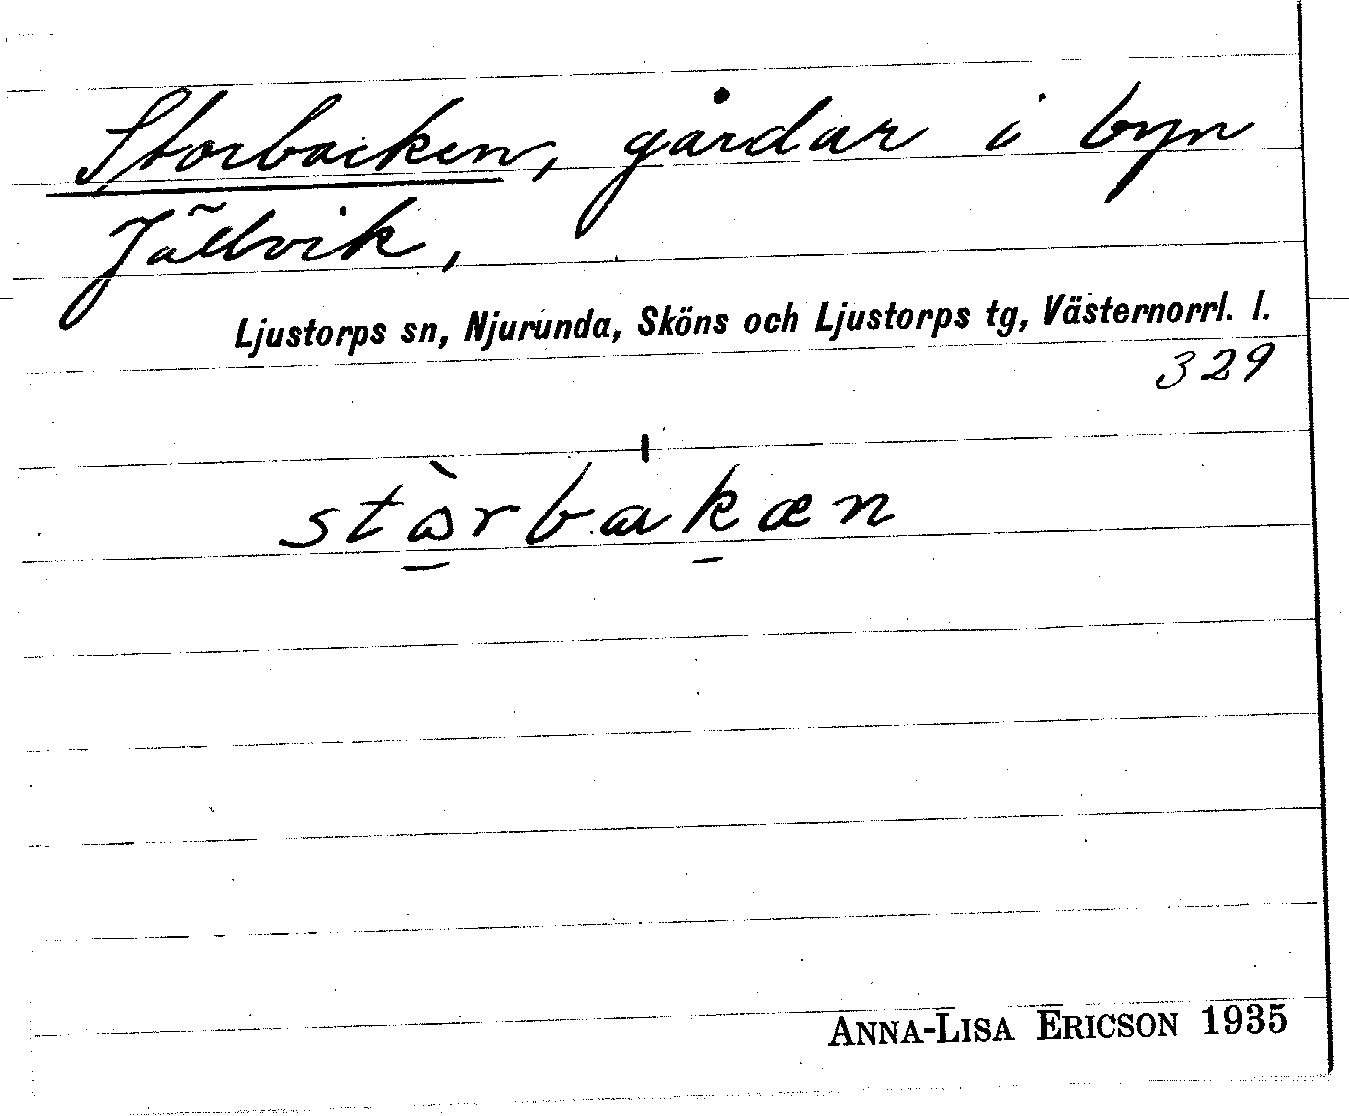 Storbacken, gårdar i byn
Jällvik,
Ljustorps sn, Njurunda, Sköns och Ljustorps tg, Västernorrl. l.
329
stòrbakæn
ANNA-LISA ERICSON 1935